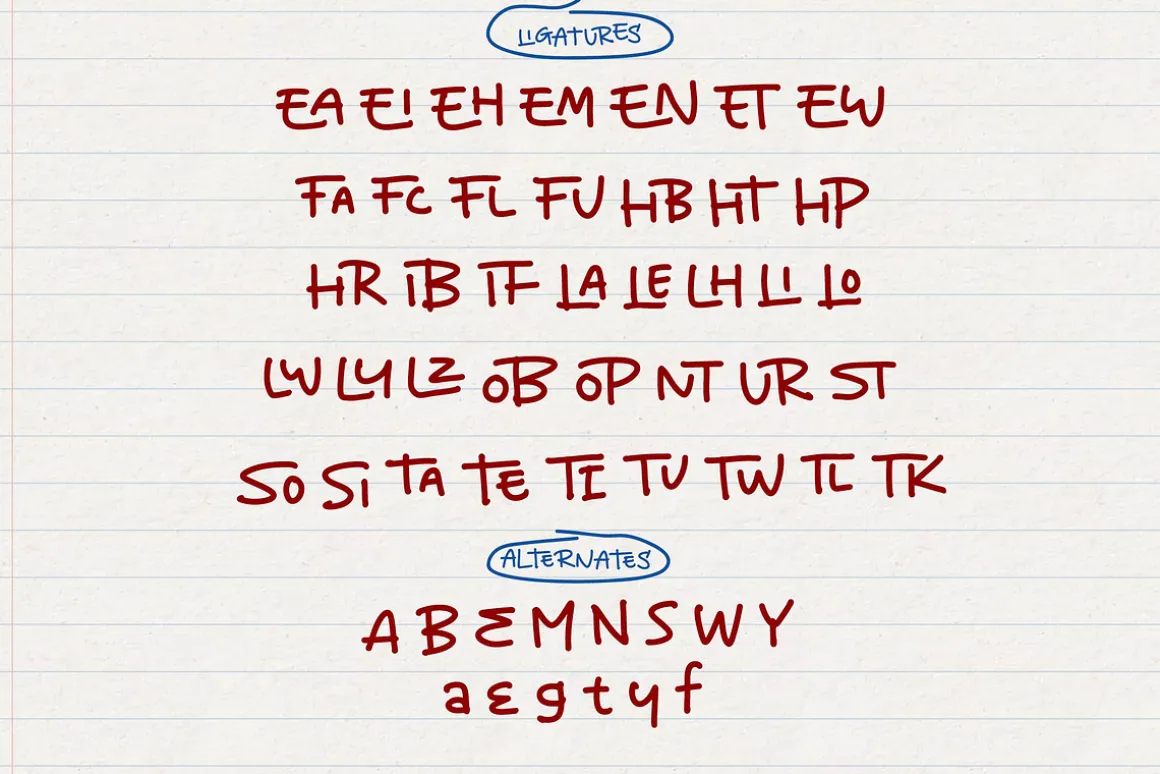 LIGATURES
EA EI EH EM EN ET EW
FA FC FL FU HB HT HP
HR IB TF LA LE LH LI LO
LW LY LZ OB OP NT UR ST
SO SI TA TE TI TU TW TL TK
ALTERNATES
A B E M N S W Y
a ε g t y f